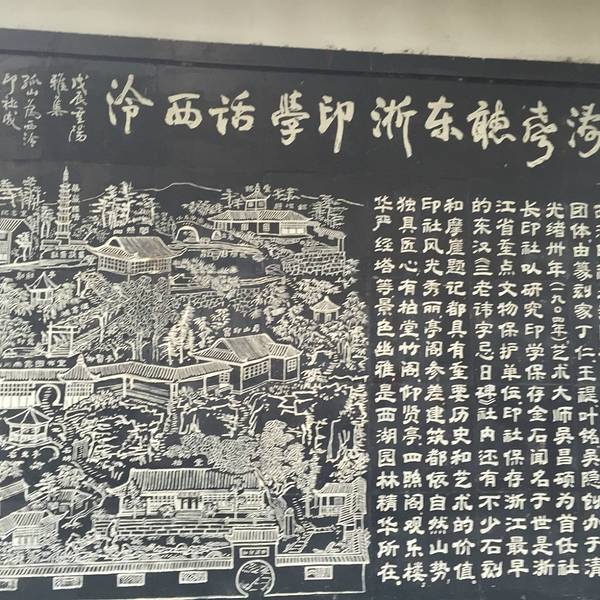 涛声聽东浙印學话西泠
戊辰重陽
雅集
孤山為西泠
印社成
团体由篆刻家丁仁王禔叶铭吴隐创办于清
光绪卅年(一九〇四年)艺术大师吴昌硕为首任社
长印社以研究印学保存金石闻名于世是浙
江省重点文物保护单位印社保存浙江最早
的东汉《三老讳字忌日碑》社内还有不少石刻
和摩崖题记都具有重要历史和艺术的价值
印社风光秀丽亭阁参差建筑都依自然山势
独具匠心有柏堂竹阁仰贤亭四照阁观乐楼
华严经塔等景色幽雅是西湖园林精华所在